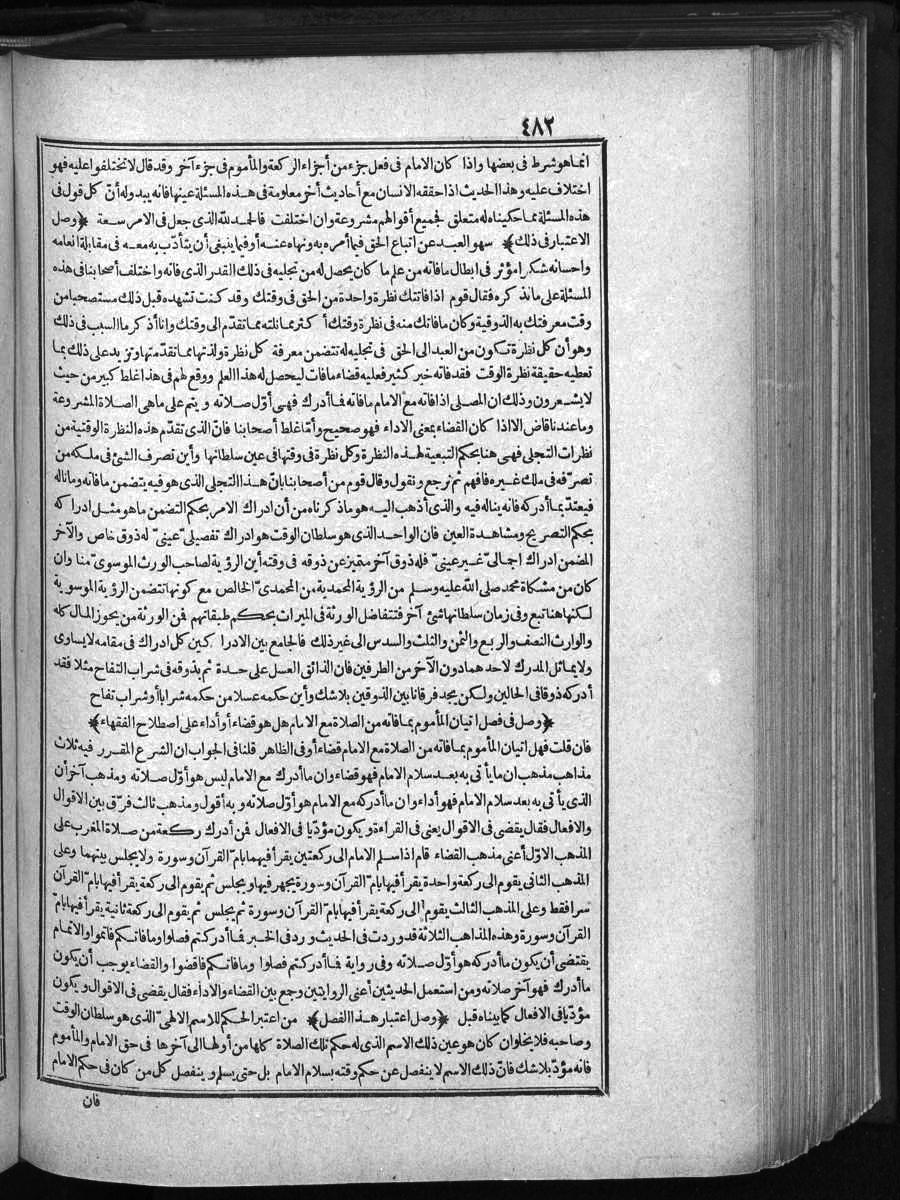 ٤٨٢
انما هو شرط فى بعضها واذا كان الامام فى فعل جزء من أجزاء الركعة والمأموم فى جزء آخر وقد قال لا تختلفوا عليه فهو
اختلاف عليه وهذا الحديث اذا حققه الانسان مع أحاديث أخر معلومة فى هذه المسئلة عينها فانه يبدو له أنّ كل قول فى
هذه المسئلة مما حكيناه له متعلق فجميع أقوالهم مشروعة وان اختلفت فالحمد لله الذى جعل فى الامر سعة ﴿وصل
الاعتبار فى ذلك﴾ سهو العبد عن اتباع الحق فيما أمره به ونهاه عنه أو فيما ينبغى أن يتأدّب به معه فى مقابلة انعامه
واحسانه شكرا مؤثر فى ابطال ما فاته من علم ما كان يحصل له من تجليه فى ذلك القدر الذى فاته واختلف أصحابنا فى هذه
المسئلة على ما نذكره فقال قوم اذا فاتتك نظرة واحدة من الحق فى وقتك وقد كنت تشهده قبل ذلك مستصحبا من
وقت معرفتك به الذوقية وكان ما فاتك منه فى نظرة وقتك أكثر مما نلته مما تقدّم الى وقتك وانا أذكر ما السبب فى ذلك
وهو أن كل نظرة تكون من العبد الى الحق فى تجليه له تتضمن معرفة كل نظرة ولذتها مما تقدمتها وتزيد على ذلك بما
تعطيه حقيقة نظرة الوقت فقد فاته خير كثير فعليه قضاء ما فات ليحصل له هذا العلم ووقع لهم فى هذا غلط كبير من حيث
لا يشعرون وذلك ان المصلى اذا فاته مع الامام ما فاته فما أدرك فهى أوّل صلاته ويتم على ما هى الصلاة المشروعة
وما عندنا قاض الا اذا كان القضاء بمعنى الاداء فهو صحيح وأمّا غلط أصحابنا فانّ الذى تقدّم هذه النظرة الوقتية من
نظرات التجلى فهى هنا بحكم التبعية لهذه النظرة وكل نظرة فى وقتها فى عين سلطانها وأين تصرف الشئ فى ملكه من
تصرّفه فى ملك غيره فافهم ثم نرجع ونقول وقال قوم من أصحابنا بانّ هذا التجلى الذى هو فيه يتضمن ما فاته وما ناله
فيعتدّ بما أدركه فانه يناله فيه والذى أذهب اليه هو ما ذكرناه من أن ادراك الامر بحكم التضمن ما هو مثل ادراكه
بحكم التصريح ومشاهدة العين فان الواحد الذى هو سلطان الوقت هو ادراك تفصيلىّ عينىّ له ذوق خاص والآخر
المضمن ادراك اجمالىّ غير عينىّ فله ذوق آخر متميز عن ذوقه فى وقته أين الرؤية لصاحب الورث الموسوىّ منا وان
كان من مشكاة محمد صلى الله عليه وسلم من الرؤية المحمدية من المحمدىّ الخالص مع كونها تتضمن الرؤية الموسوية
لكنها هنا تبع وفى زمان سلطانها شئ آخر فتتفاضل الورثة فى الميراث بحكم طبقاتهم فمن الورثة من يحوز المال كله
والوارث النصف والربع والثمن والثلث والسدس الى غير ذلك فالجامع بين الادراكين كل ادراك فى مقامه لا يساوى
ولا يماثل المدرك لاحدهما دون الآخر من الطرفين فان الذائق العسل على حدة ثم يذوقه فى شراب التفاح مثلا فقد
أدركه ذوقا فى الحالين ولكن يجد فرقانا بين الذوقين بلا شك وأين حكمه عسلا من حكمه شرابا أو شراب تفاح
﴿وصل فى فصل اتيان المأموم بما فاته من الصلاة مع الامام هل هو قضاء أو أداء على اصطلاح الفقهاء﴾
فان قلت فهل اتيان المأموم بما فاته من الصلاة مع الامام قضاء أو فى الظاهر قلنا فى الجواب ان الشرع المقرر فيه ثلاث
مذاهب مذهب ان ما يأتى به بعد سلام الامام فهو قضاء وان ما أدرك مع الامام ليس هو أوّل صلاته ومذهب آخر أن
الذى يأتى به بعد سلام الامام فهو أداء وان ما أدركه مع الامام هو أوّل صلاته وبه أقول ومذهب ثالث فرّق بين الاقوال
والافعال فقال يقضى فى الاقوال يعنى فى القراءة ويكون مؤدّيا فى الافعال فمن أدرك ركعة من صلاة المغرب على
المذهب الاوّل أعنى مذهب القضاء قام اذا سلم الامام الى ركعتين يقرأ فيهما بامّ القرآن وسورة ولا يجلس بينهما وعلى
المذهب الثانى يقوم الى ركعة واحدة يقرأ فيها بامّ القرآن وسورة يجهر فيها ويجلس ثم يقوم الى ركعة يقرأ فيها بامّ القرآن
سرا فقط وعلى المذهب الثالث يقوم الى ركعة يقرأ فيها بامّ القرآن وسورة ثم يجلس ثم يقوم الى ركعة ثانية يقرأ فيها بامّ
القرآن وسورة وهذه المذاهب الثلاثة قد وردت فى الحديث ورد فى الخبر فما أدركتم فصلوا وما فاتكم فاتموا والاتمام
يقتضى أن يكون ما أدركه هو أوّل صلاته وفى رواية فما أدركتم فصلوا وما فاتكم فاقضوا والقضاء يوجب أن يكون
ما أدرك فهو آخر صلاته ومن استعمل الحديثين أعنى الروايتين وجمع بين القضاء والاداء فقال يقضى فى الاقوال ويكون
مؤدّيا فى الافعال كما بيناه قبل ﴿وصل اعتبار هذا الفصل﴾ من اعتبر الحكم للاسم الالهىّ الذى هو سلطان الوقت
وصاحبه فلا يخلو ان كان هو عين ذلك الاسم الذى له حكم تلك الصلاة كلها من أولها الى آخرها فى حق الامام والمأموم
فانه مؤدّ بلا شك فانّ ذلك الاسم لا ينفصل عن حكم وقته بسلام الامام بل حتى يسلم وينفصل كل من كان فى حكم الامام
فان